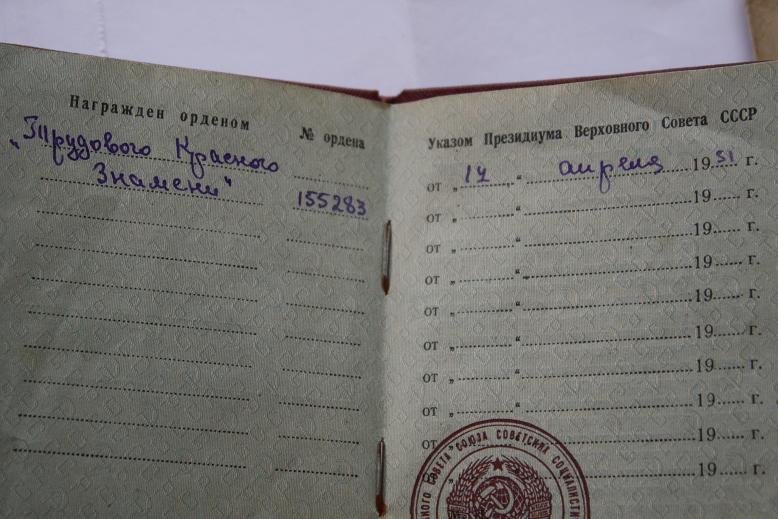 Награжден орденом
№ ордена
„Трудового Красного
Знамени"
155283
Указом Президиума Верховного Совета СССР
от „ 14 " апреля 1951 г.
от „ " 19 г.
от „ " 19 г.
от „ " 19 г.
от „ " 19 г.
от „ " 19 г.
от „ " 19 г.
от „ " 19 г.
от „ " 19 г.
„ " 19 г.
СОВЕТА СОЮЗА СОВЕТСКИХ